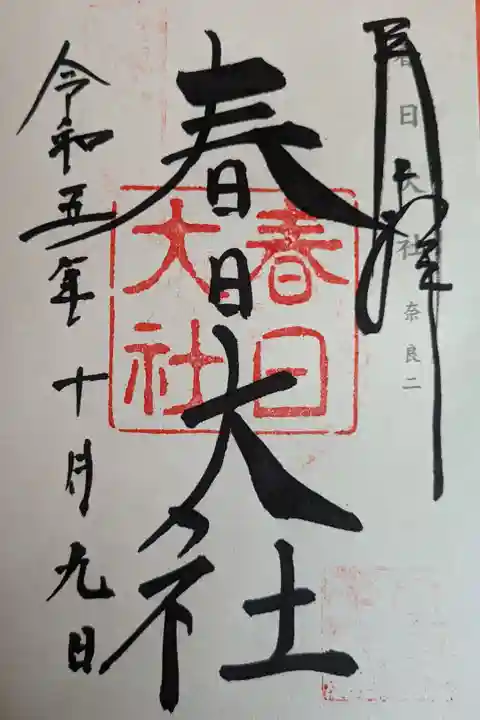 奉拝
春日大社 奈良二
春日大社
春日大社
令和五年十月九日